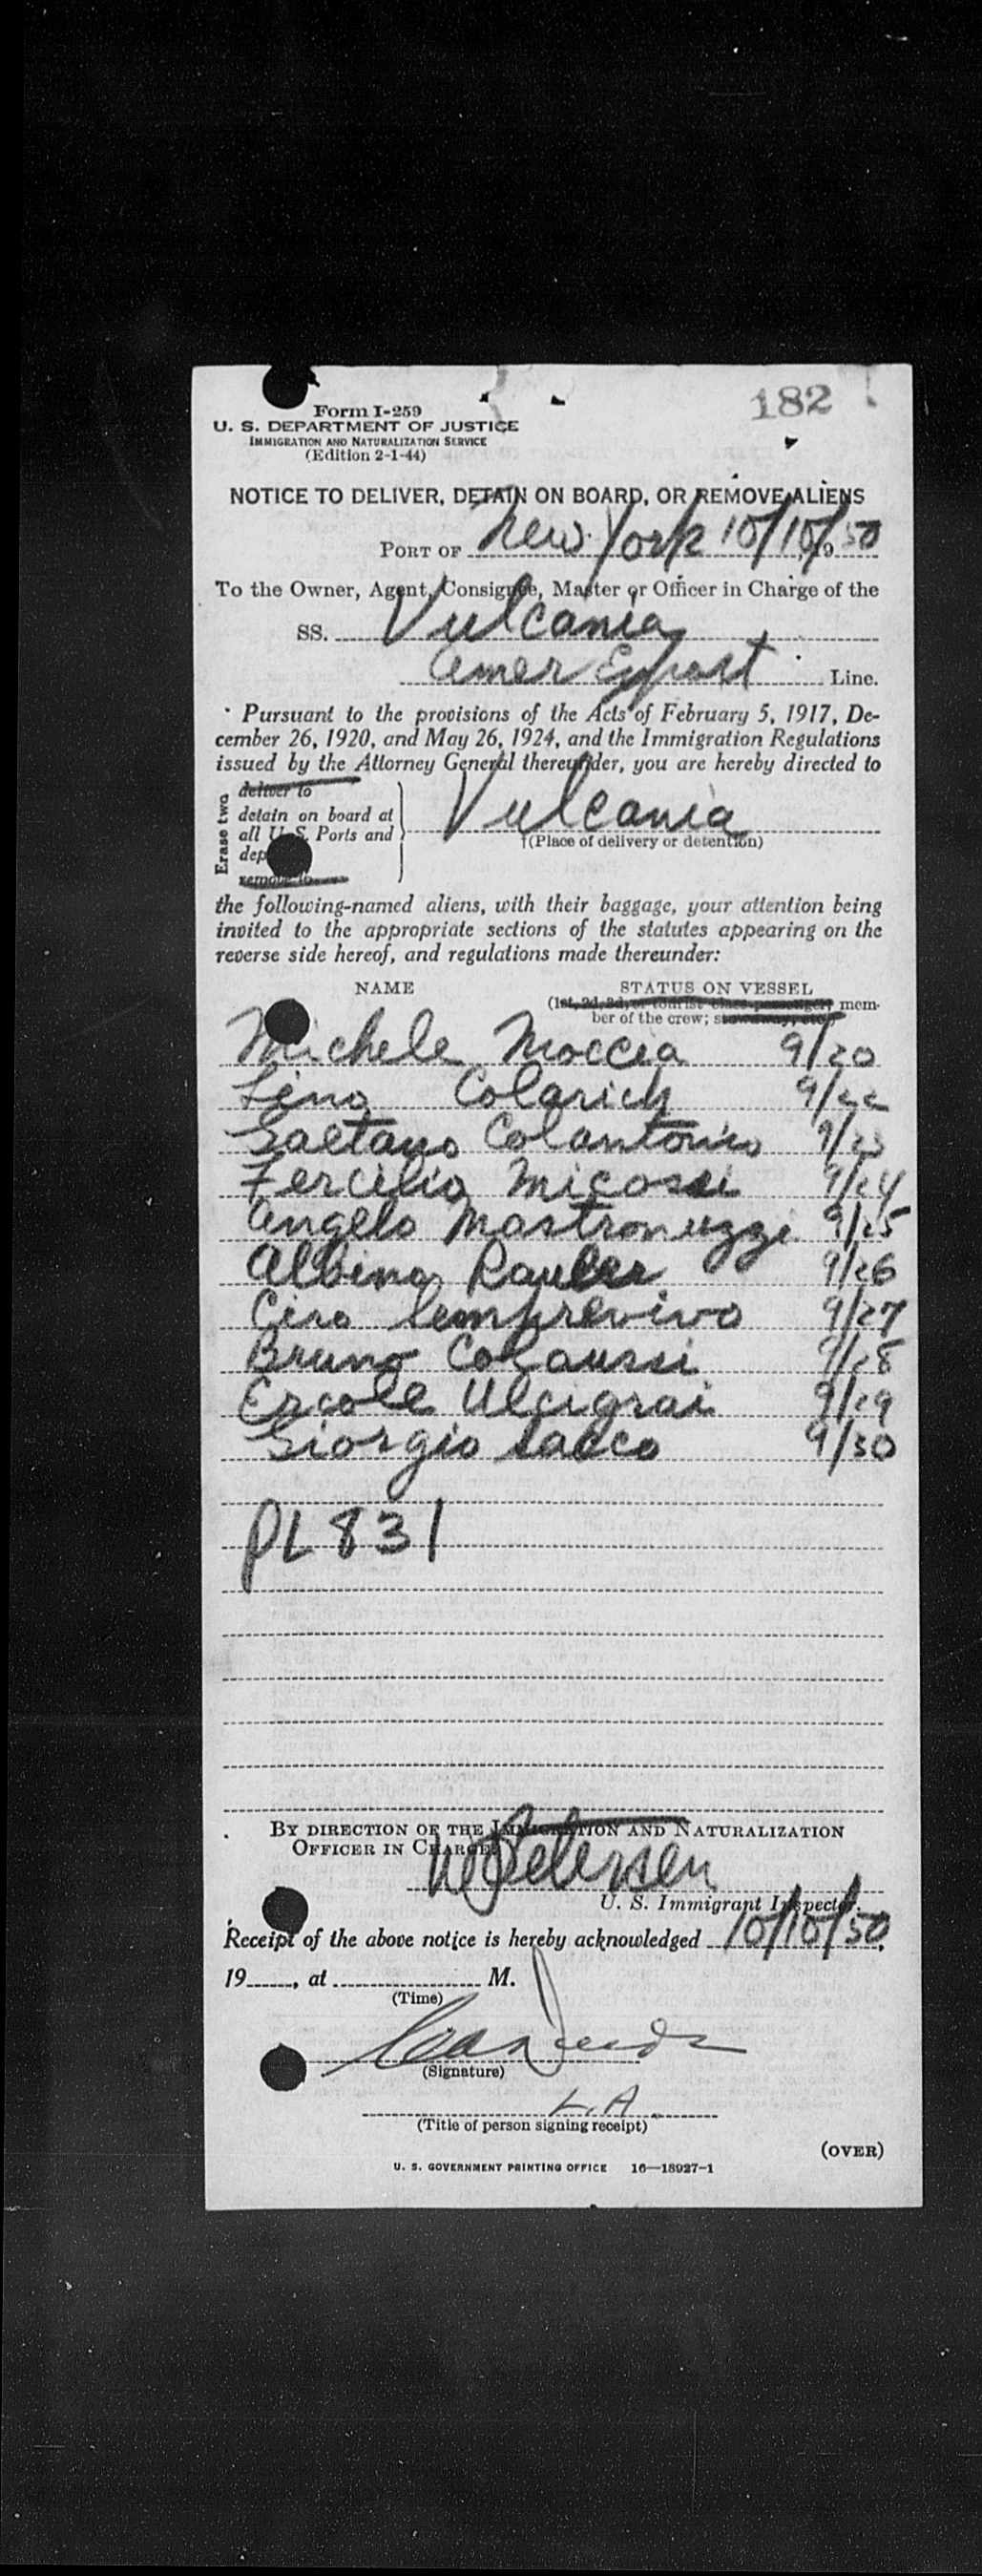 182
Form I-259
U. S. DEPARTMENT OF JUSTICE
IMMIGRATION AND NATURALIZATION SERVICE
(Edition 2-1-44)
NOTICE TO DELIVER, DETAIN ON BOARD, OR REMOVE ALIENS
PORT OF New York 10/10/, 1950
To the Owner, Agent, Consignee, Master or Officer in Charge of the
SS. Vulcania
Amer Export Line.
Pursuant to the provisions of the Acts of February 5, 1917, De-
cember 26, 1920, and May 26, 1924, and the Immigration Regulations
issued by the Attorney General thereunder, you are hereby directed to
Erase two
deliver to
detain on board at
all U. S. Ports and
dep
remove to
Vulcania
†(Place of delivery or detention)
the following-named aliens, with their baggage, your attention being
invited to the appropriate sections of the statutes appearing on the
reverse side hereof, and regulations made thereunder:
NAME STATUS ON VESSEL
(1st, 2d, 3d, or tourist class passenger; mem-
ber of the crew; stowaway, etc.)
Michele Moccia 9/20
Lino Colarich 9/22
Gaetano Colantonio 9/23
Fercilio Micossi 9/24
Angelo Mastronuzzi 9/25
Albino 9/26
Ciro Semprevivo 9/27
Bruno Colaussi 9/28
Ercole Ulcigrai 9/29
Giorgio Sacco 9/30
PL 831
BY DIRECTION OF THE IMMIGRATION AND NATURALIZATION
OFFICER IN CHARGE:
Petersen
U. S. Immigrant Inspector.
Receipt of the above notice is hereby acknowledged 10/10/50,
19, at M.
(Time)
(Signature)
(Title of person signing receipt)
(OVER)
U. S. GOVERNMENT PRINTING OFFICE 16—18927-1